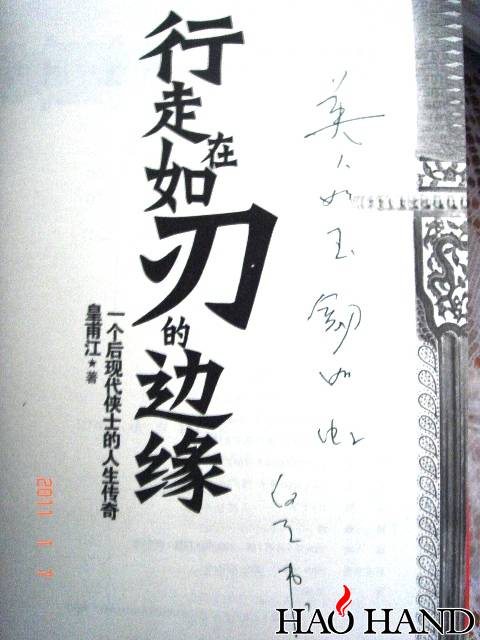 美人如玉劍如虹
行走在如刃的边缘
一个后现代侠士的人生传奇
皇甫江★著
2011 1 7
HAO HAND